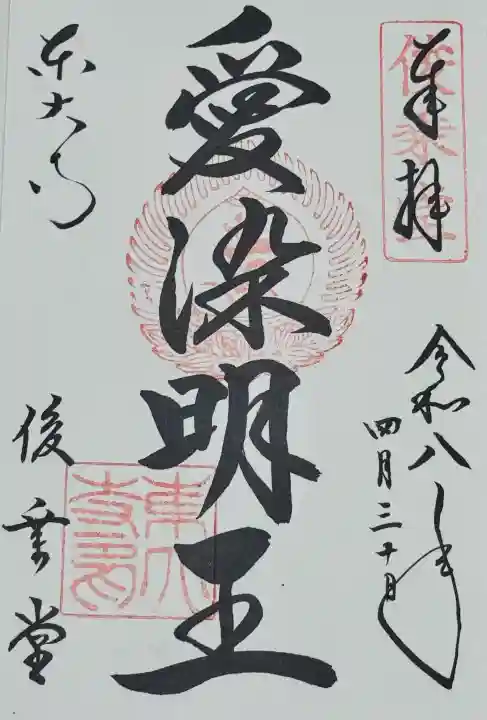 奉拝
俊乗堂
令和八年
四月三十日
愛染明王
東大寺
東大寺印
俊乗堂